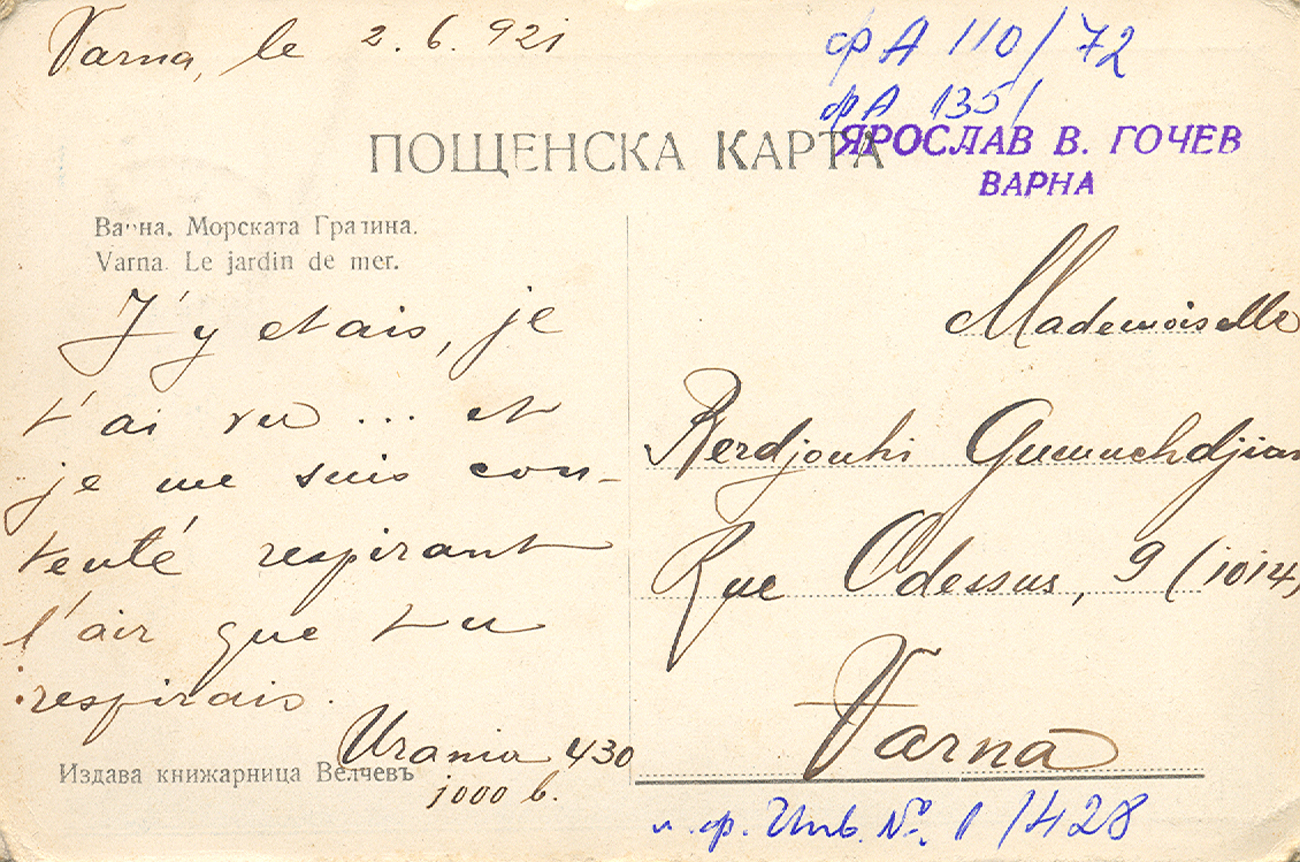 Varna, le 2.6.921
фА 110/72
фА 1351
ПОЩЕНСКА КАРТА
ЯРОСЛАВ В. ГОЧЕВ
ВАРНА
Варна. Морската Градина.
Varna. Le jardin de mer.
J'y etais, je
t'ai vu ... et
je me suis con-
tenté respirant
l'air que tu
respirais.
Urania 430
1000 b.
Издава книжарница Велчевъ
Mademoiselle
Berdjouhi Gumuchdjian
Rue Odessus, 9 (1014)
Varna
Инв. № 1/428